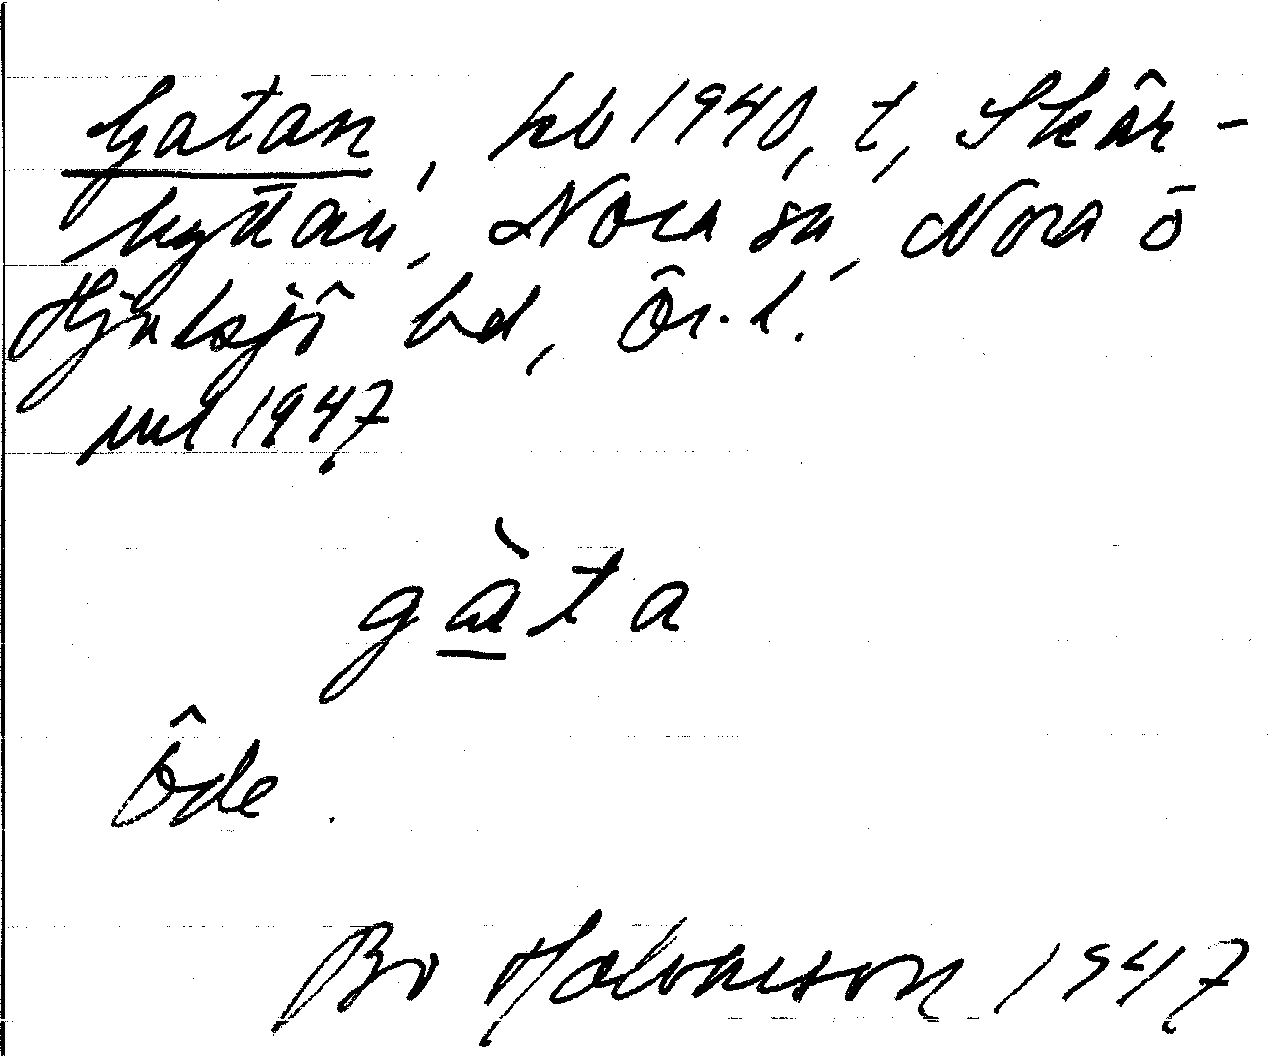 Gatan, kb 1940, t, Skär-
hyttan, Nora sn, Nora o
Hjulsjö bd, Ör. l.
uul 1947
gàta
Öde.
Bo Halvarson 1947